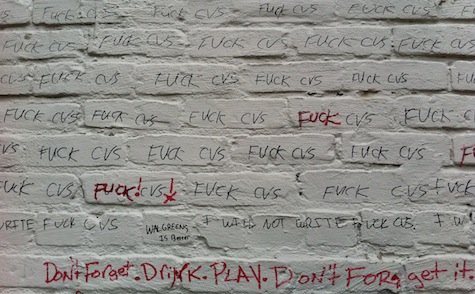 FUCK CVS FUCK CVS FUCK CVS FUCK CVS
FUCK CVS FUCK CVS FUCK CVS FUCK CVS FUCK CVS
CVS FUCK CVS FUCK CVS FUCK CVS FUCK CVS
FUCK CVS FUCK CVS FUCK CVS FUCK CVS FUCK
FUCK CVS FUCK CVS FUCK CVS FUCK CVS
FUCK CVS FUCK! CVS! FUCK CVS FUCK CVS
WRITE FUCK CVS WALGREENS I WILL NOT WRITE FUCK CVS. I
IS Better
Don't Forget. Drink. PLAY. Don't Forget it.